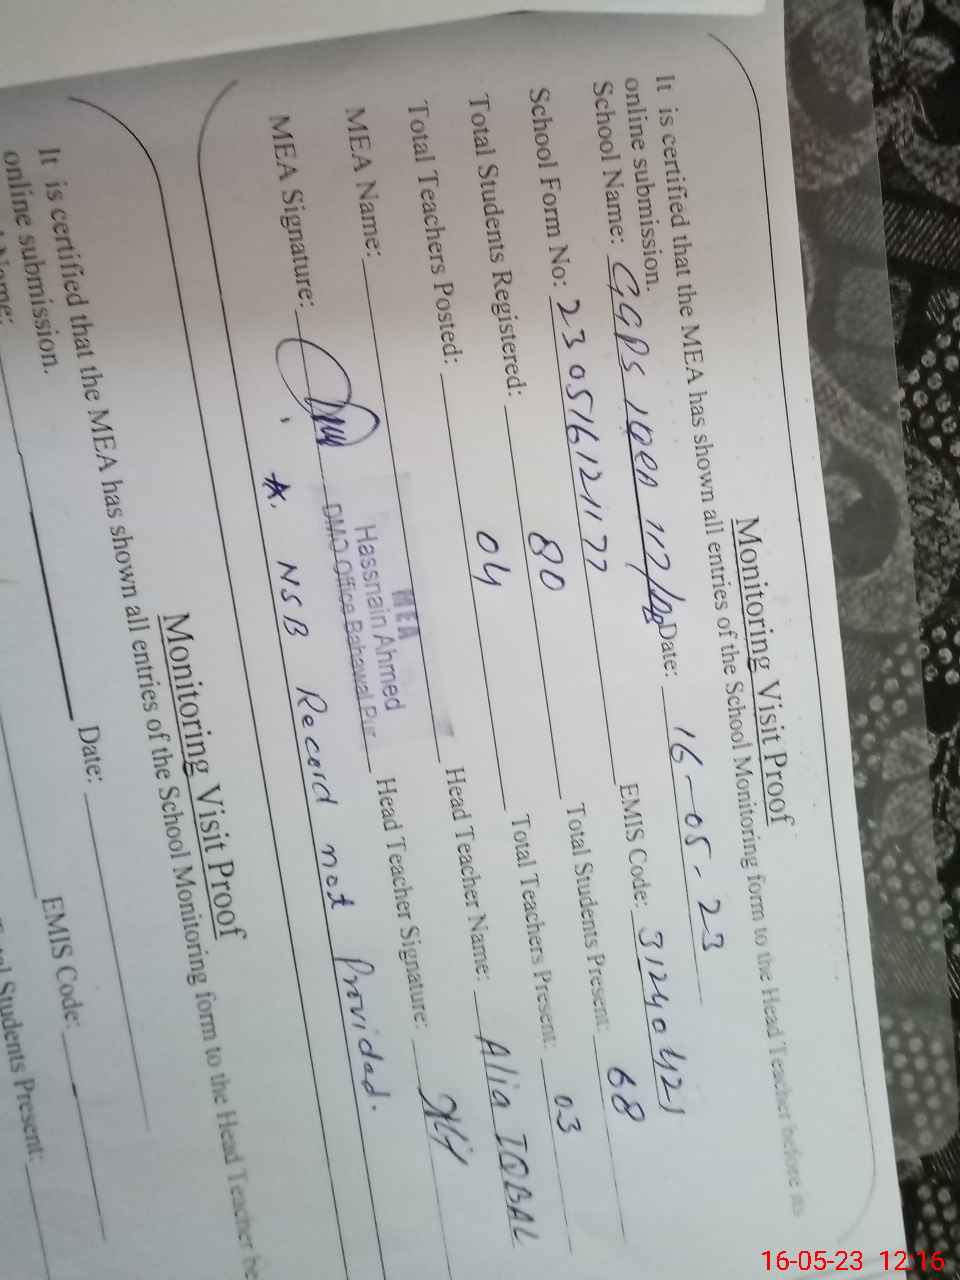 Monitoring Visit Proof
It is certified that the MEA has shown all entries of the School Monitoring form to the Head Teacher before its
online submission.
School Name: GGPS 117/DB Date: 16-05-23
School Form No: 230516121177 EMIS Code: 31240421
Total Students Registered: 80 Total Students Present: 68
Total Teachers Posted: 04 Total Teachers Present: 03
MEA Name: MEA Hassnain Ahmed DMO Office Bahawal Pur Head Teacher Name: Alia IQBAL
MEA Signature: Head Teacher Signature:
*. NSB Record not Providad.
Monitoring Visit Proof
It is certified that the MEA has shown all entries of the School Monitoring form to the Head Teacher be
online submission.
Name: Date:
EMIS Code:
Students Present:
16-05-23 12:16